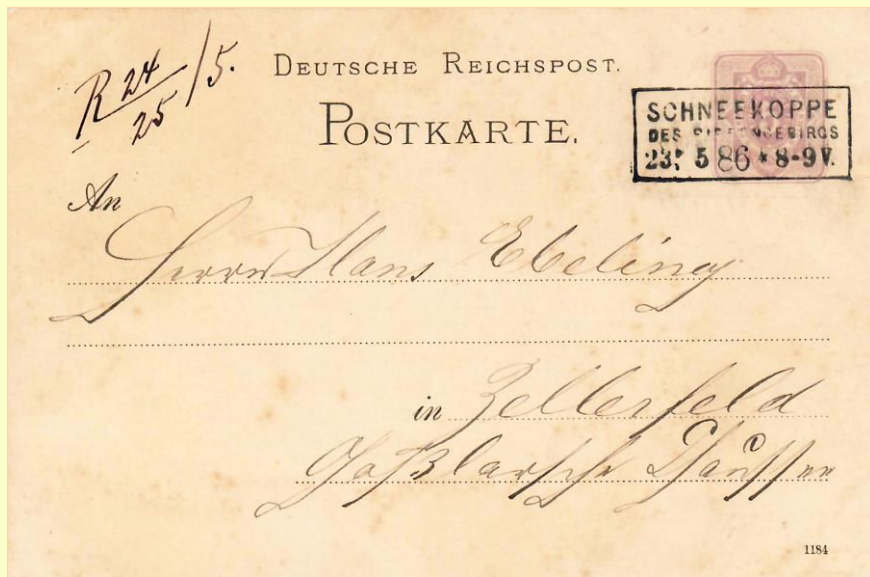 R 24/25/5.
DEUTSCHE REICHSPOST.
POSTKARTE.
SCHNEEKOPPE
DES RIESENGEBIRGS
23. 5 86 * 8-9 V.
An
Herrn Hans Ebeling
in Zellerfeld
Goßlarsche Chaussee
1184